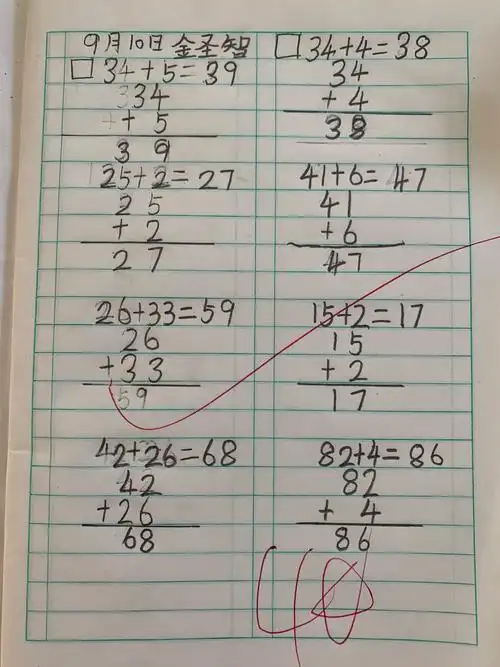 9月10日 金圣智
□34+5=39
34
+ 5
39
25+2=27
25
+ 2
27
26+33=59
26
+33
59
42+26=68
42
+26
68
□34+4=38
34
+ 4
38
41+6=47
41
+6
47
15+2=17
15
+ 2
17
82+4=86
82
+ 4
86